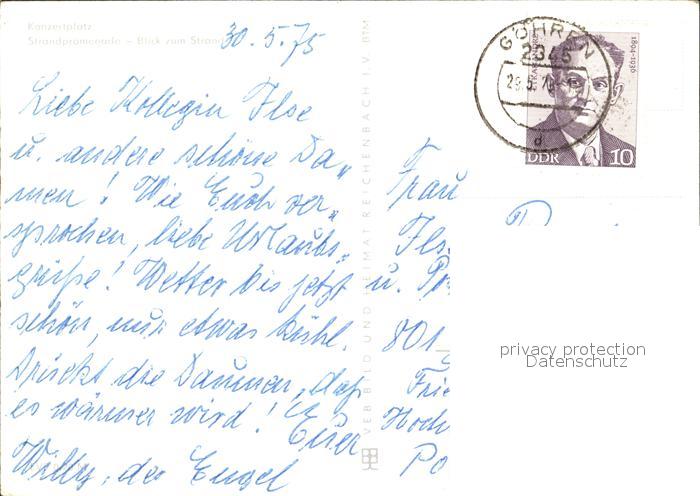 Konzertplatz
Strandpromenade – Blick zum Strand
30.5.75
Liebe Kollegin Ilse
u. andere schöne Da„
men! Wie Euch ver„
sprochen, liebe Urlaubs„
grüße! Wetter bis jetzt
schön, nur etwas kühl.
Drückt die Daumen, daß
es wärmer wird! Euer
Willy, der Engel
VEB BILD UND HEIMAT REICHENBACH I.V. BTM
GÖHREN
2345
d
1894-1936
DDR 10
Frau
Ils
u.
801
Frie
Hoch
Po
privacy protection
Datenschutz